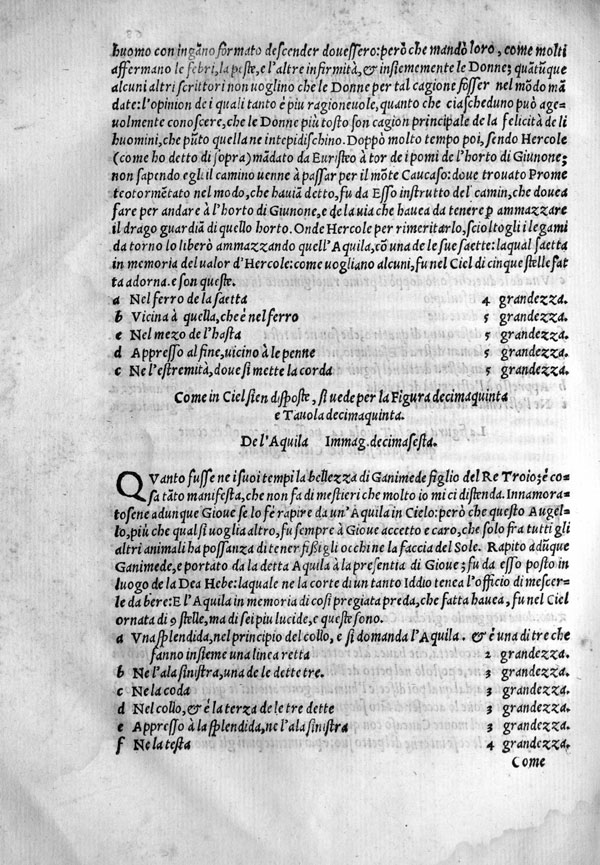 huomo con ingãno formato descender douessero: però che mandò loro, come molti
affermano le febri, la peste, e l'altre infirmità, & insiememente le Donne; quãtũque
alcuni altri scrittori non uoglino che le Donne per tal cagione fosser nel mõdo mã
date: l'opinion de i quali tanto è piu ragioneuole, quanto che ciascheduno può age-
uolmente conoscere, che le Donne piu tosto son cagion principale de la felicità de li
huomini, che pũto quella ne intepidischino. Doppò molto tempo poi, sendo Hercole
(come ho detto di sopra) mãdato da Euristèo à tor de i pomi de l'horto di Giunone;
non sapendo egli il camino uenne à passar per il mõte Caucaso: doue trouato Prome
teo tormẽtato nel modo, che hauiã detto, fu da Esso instrutto del camin, che douea
fare per andare à l'horto di Giunone, e de la uia che hauea da tenere p ammazzare
il drago guardiã di quello horto. Onde Hercole per rimeritarlo, scioltogli i legami
da torno lo liberò ammazzando quell'Aquila, cõ una de le sue saette: laqual saetta
in memoria del ualor d'Hercole: come uogliano alcuni, fu nel Ciel di cinque stelle fat
ta adorna. e son queste.
a Nel ferro de la saetta 4 grandezza.
b Vicina à quella, che è nel ferro 5 grandezza.
e Nel mezo de l'hasta 5 grandezza.
d Appresso al fine, uicino à le penne 5 grandezza.
c Ne l'estremità, doue si mette la corda 5 grandezza.
Come in Ciel sien disposte, si uede per la Figura decimaquinta
e Tauola decimaquinta.
De l'Aquila Immag. decimasesta.
QVanto fusse ne i suoi tempi la bellezza di Ganimede figlio del Re Troio; è co-
sa tãto manifesta, che non fa di mestieri che molto io mi ci distenda. Innamora-
tosene adunque Gioue se lo fè rapire da un'Aquila in Cielo: però che questo Augel-
lo, più che qual si uoglia altro, fu sempre à Gioue accetto e caro, che solo fra tutti gli
altri animali ha possanza di tener fißi gli occhi ne la faccia del Sole. Rapito adũque
Ganimede, e portato da la detta Aquila à la presentia di Gioue; fu da esso posto in
luogo de la Dea Hebe: laquale ne la corte di un tanto Iddio tenea l'officio di mescer-
le da bere: E l'Aquila in memoria di cosi pregiata preda, che fatta hauea, fu nel Ciel
ornata di 9 stelle, ma di sei piu lucide, e queste sono.
a Vna splendida, nel principio del collo, e si domanda l'Aquila. & è una di tre che
fanno insieme una linea retta 2 grandezza.
b Ne l'ala sinistra, una de le dette tre. 3 grandezza.
c Ne la coda 3 grandezza.
d Nel collo, & è la terza de le tre dette 3 grandezza.
e Appresso à la splendida, ne l'ala sinistra 3 grandezza.
f Ne la testa 4 grandezza.
Come